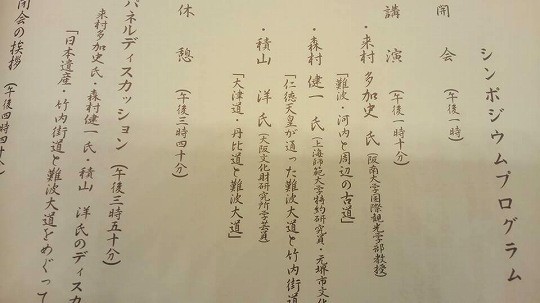 シンポジウムプログラム
開会（午後一時）
講演（午後一時十分）
・来村多加史氏（阪南大学国際観光学部教授）
「難波・河内と周辺の古道」
・森村健一氏（上海師範大学特約研究員・元堺市文化
「仁徳天皇が通った難波大道と竹内街
・積山洋氏（大阪文化財研究所学芸員）
「大津道・丹比道と難波大道」
休憩（午後三時四十分）
パネルディスカッション（午後三時五十分）
来村多加史氏・森村健一氏・積山洋氏のディスカ
「日本遺産・竹内街道と難波大道をめぐって
閉会の挨拶（午後四時四十分）